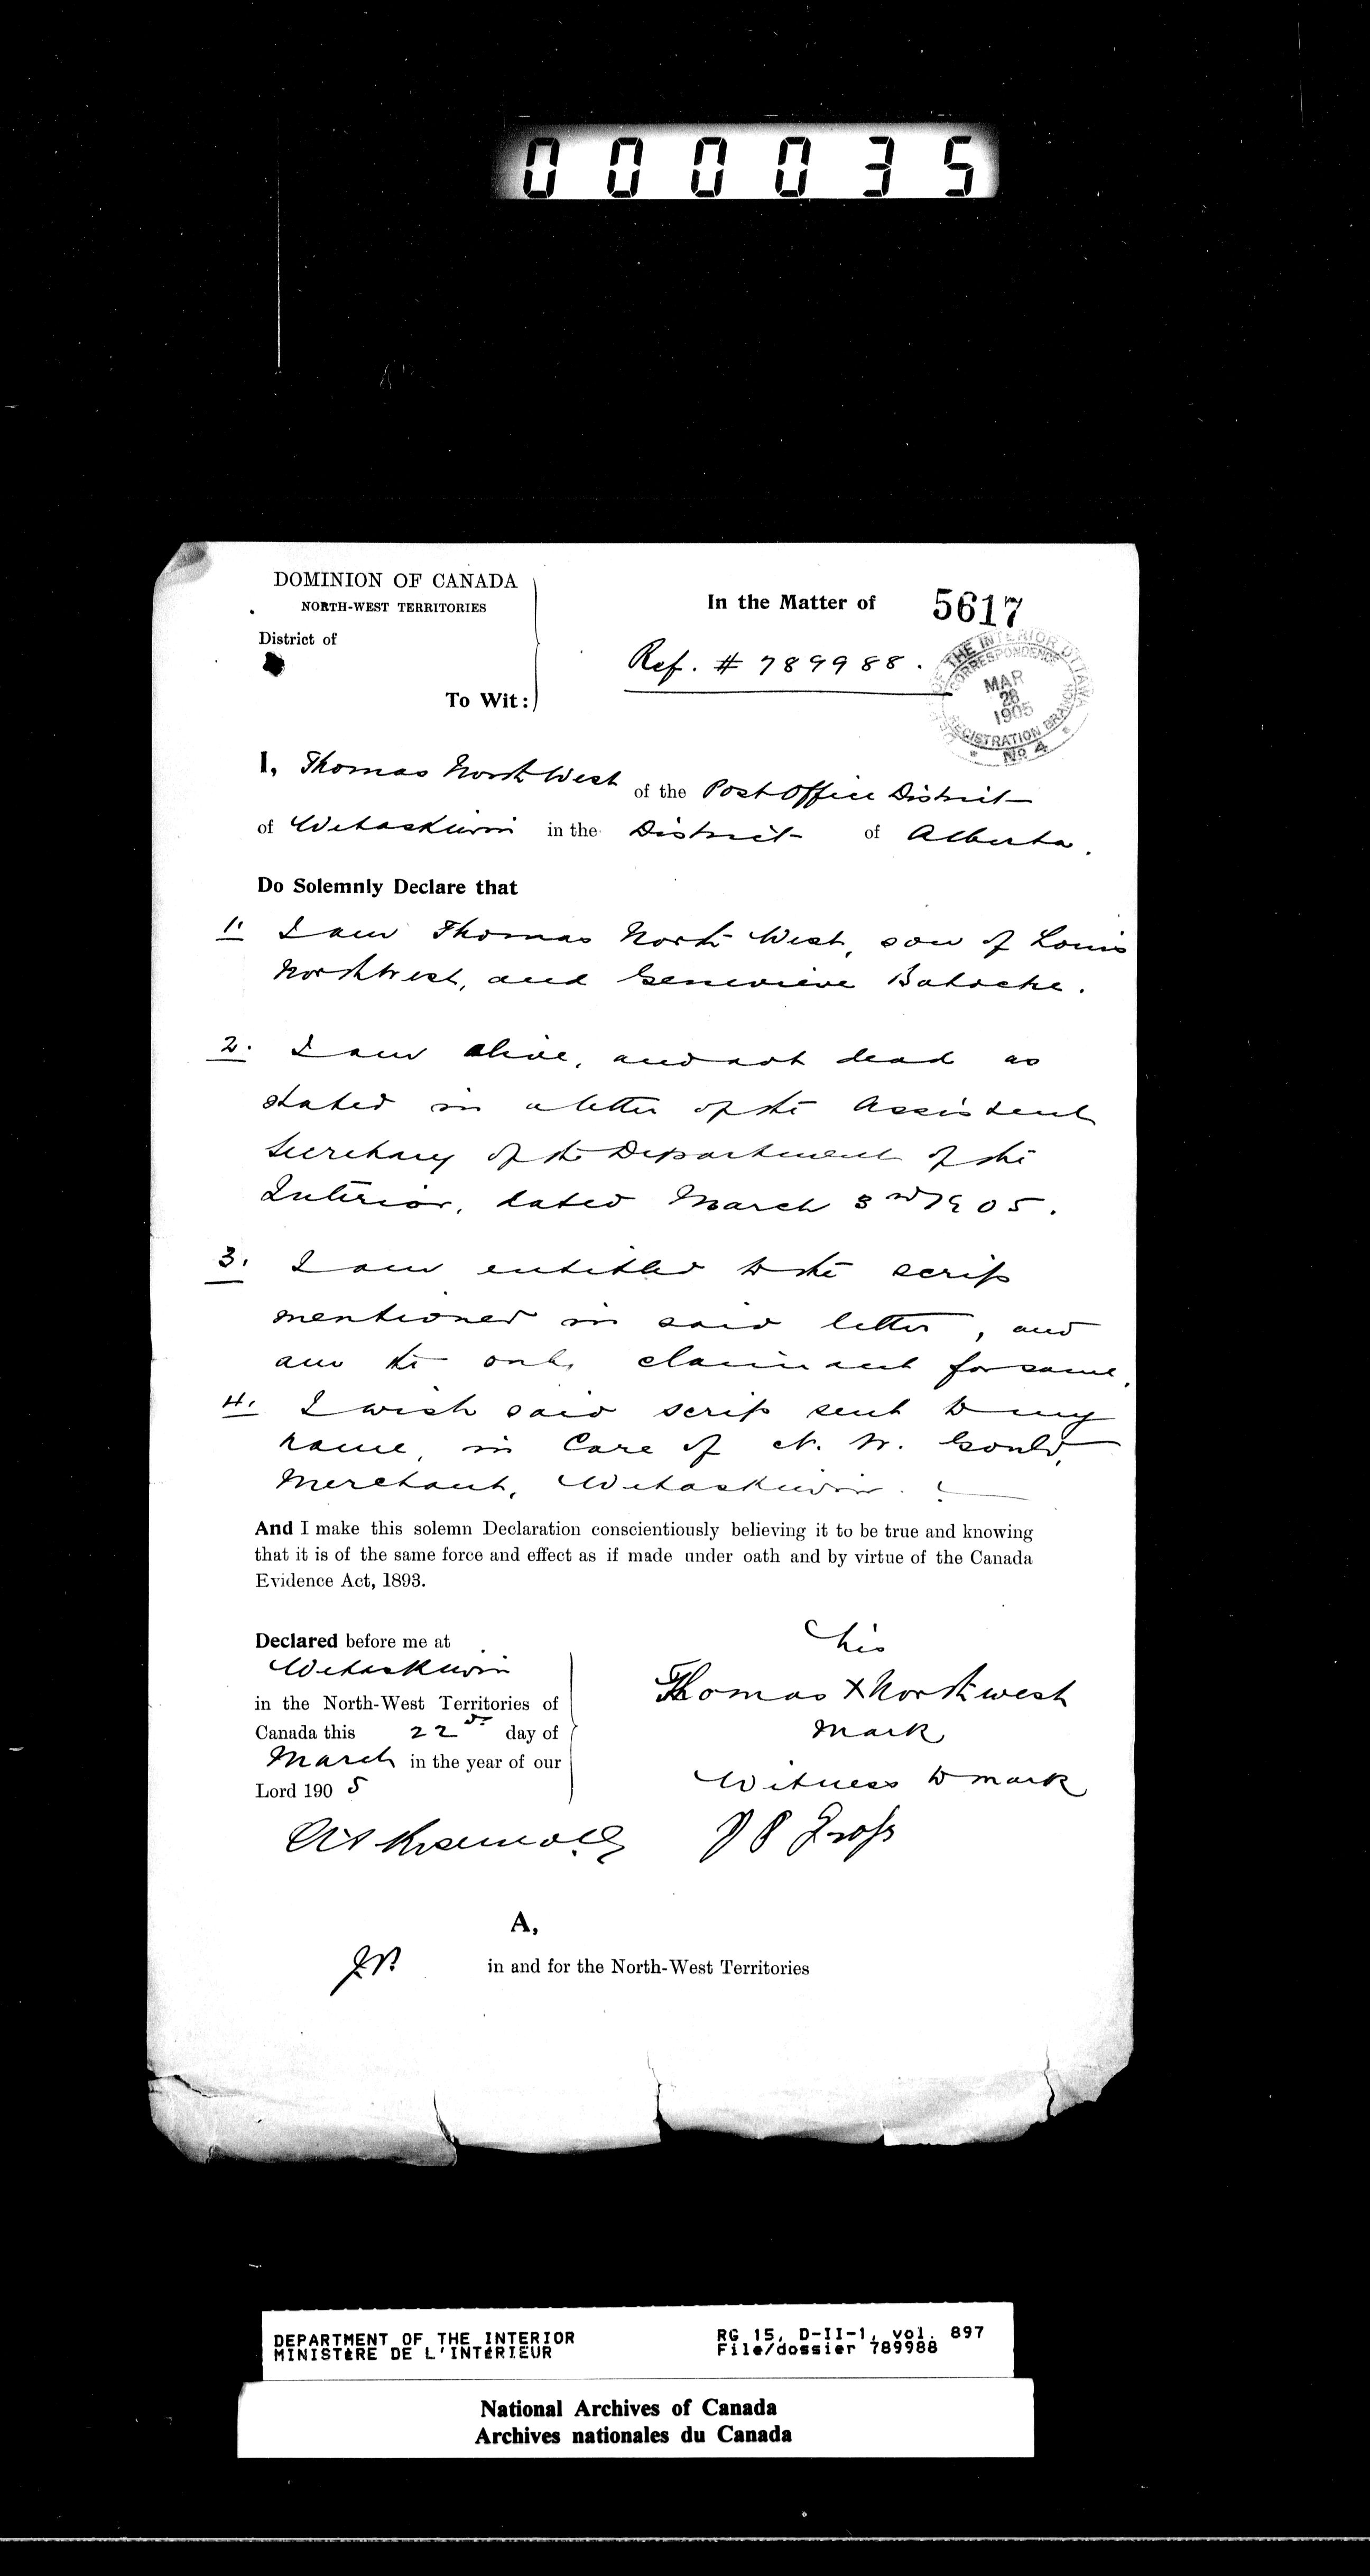 000035
DOMINION OF CANADA
NORTH-WEST TERRITORIES
District of
To Wit:
In the Matter of 5617
Ref. # 789988.
DEPT OF THE INTERIOR OTTAWA
CORRESPONDENCE
MAR
28
1905
REGISTRATION BRANCH
No 4
I, Thomas North West of the Post Office District
of Wetaskiwin in the District of Alberta.
Do Solemnly Declare that
1. I am Thomas North West, son of Louis
Northwest, and Genevieve Batoche.
2. I am alive, and not dead as
stated in a letter of the Assistent
Secretary of the Department of the
Interior, dated March 3rd 1905.
3. I am entitled to the scrip
mentioned in said letter, and
am the only claimant for same.
4. I wish said scrip sent to my
name, in Care of N. W. Gould,
Merchant, Wetaskiwin.
And I make this solemn Declaration conscientiously believing it to be true and knowing
that it is of the same force and effect as if made under oath and by virtue of the Canada
Evidence Act, 1893.
Declared before me at
Wetaskiwin
in the North-West Territories of
Canada this 22nd day of
March in the year of our
Lord 1905
his
Thomas X Northwest
mark
Witness to mark
A,
J.P.
in and for the North-West Territories
DEPARTMENT OF THE INTERIOR
MINISTÈRE DE L'INTÉRIEUR
RG 15, D-II-1, vol. 897
File/dossier 789988
National Archives of Canada
Archives nationales du Canada